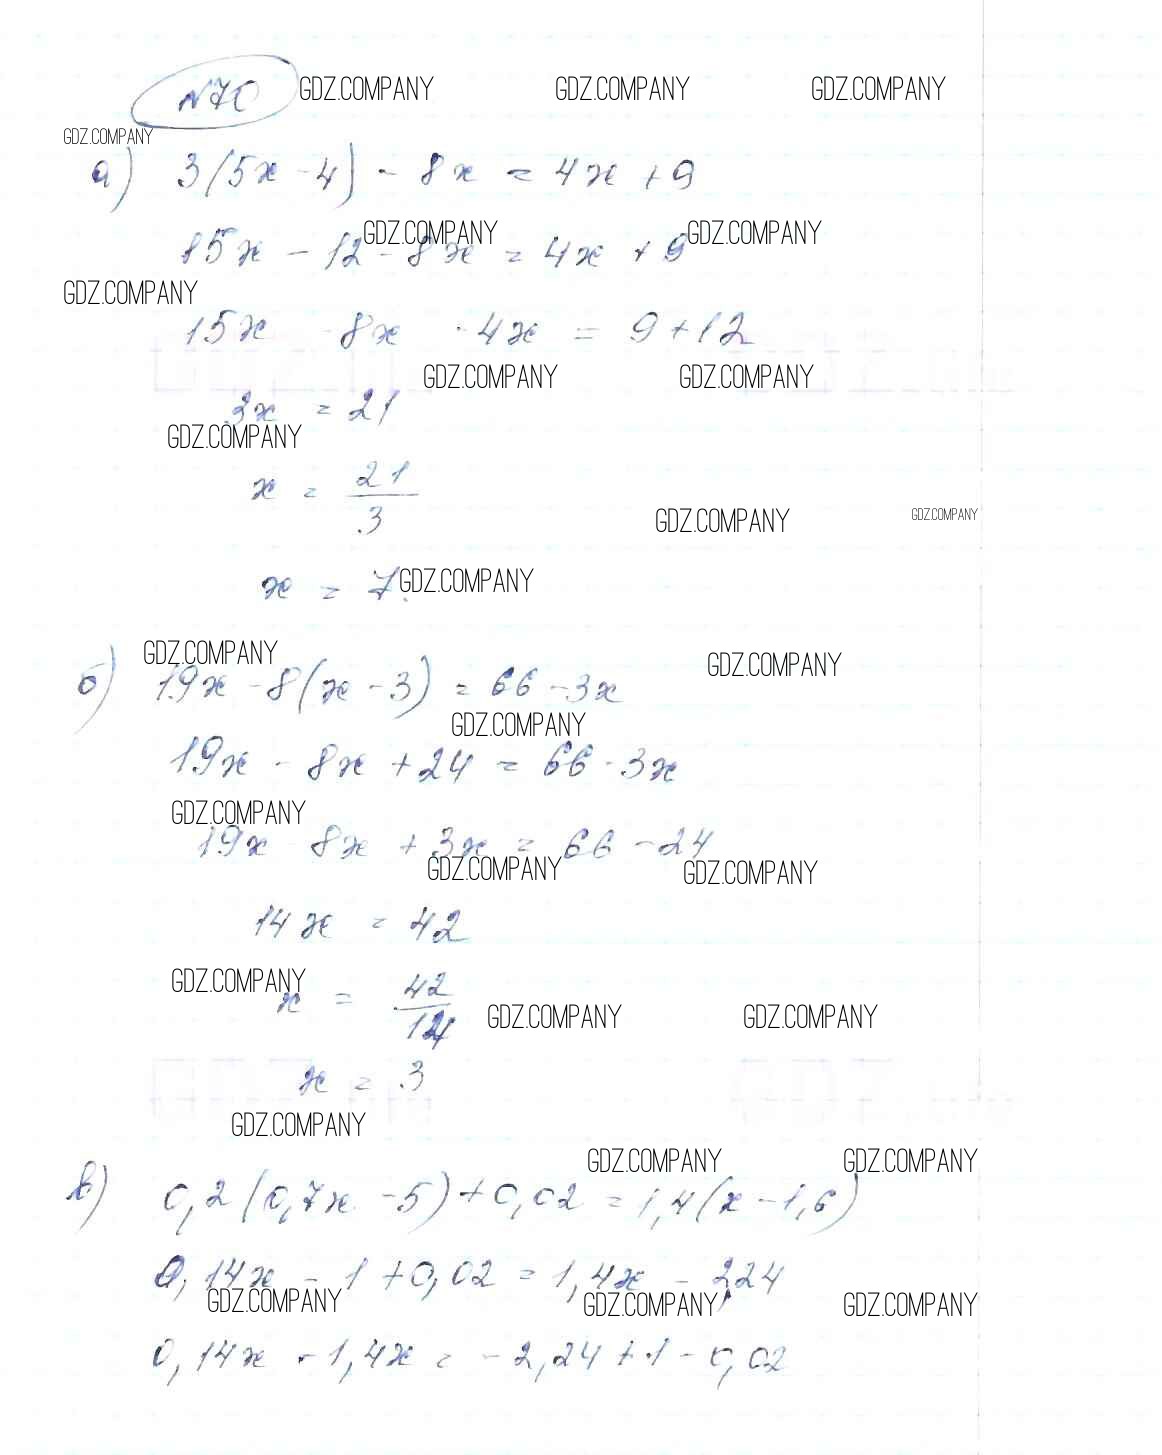 №70 GDZ.COMPANY GDZ.COMPANY GDZ.COMPANY
GDZ.COMPANY
а) 3(5x - 4) - 8x = 4x + 9
GDZ.COMPANY GDZ.COMPANY
15x - 12 - 8x = 4x + 9
GDZ.COMPANY
15x - 8x - 4x = 9 + 12
GDZ.COMPANY GDZ.COMPANY
3x = 21
GDZ.COMPANY
x = 21/3
GDZ.COMPANY GDZ.COMPANY
x = 7. GDZ.COMPANY
GDZ.COMPANY GDZ.COMPANY
б) 19x - 8(x - 3) = 66 - 3x
GDZ.COMPANY
19x - 8x + 24 = 66 - 3x
GDZ.COMPANY
19x - 8x + 3x = 66 - 24
GDZ.COMPANY GDZ.COMPANY
14x = 42
GDZ.COMPANY
x = 42/14
GDZ.COMPANY GDZ.COMPANY
x = 3
GDZ.COMPANY
GDZ.COMPANY GDZ.COMPANY
в) 0,2(0,7x - 5) + 0,02 = 1,4(x - 1,6)
0,14x - 1 + 0,02 = 1,4x - 2,24
GDZ.COMPANY GDZ.COMPANY GDZ.COMPANY
0,14x - 1,4x = -2,24 + 1 - 0,02